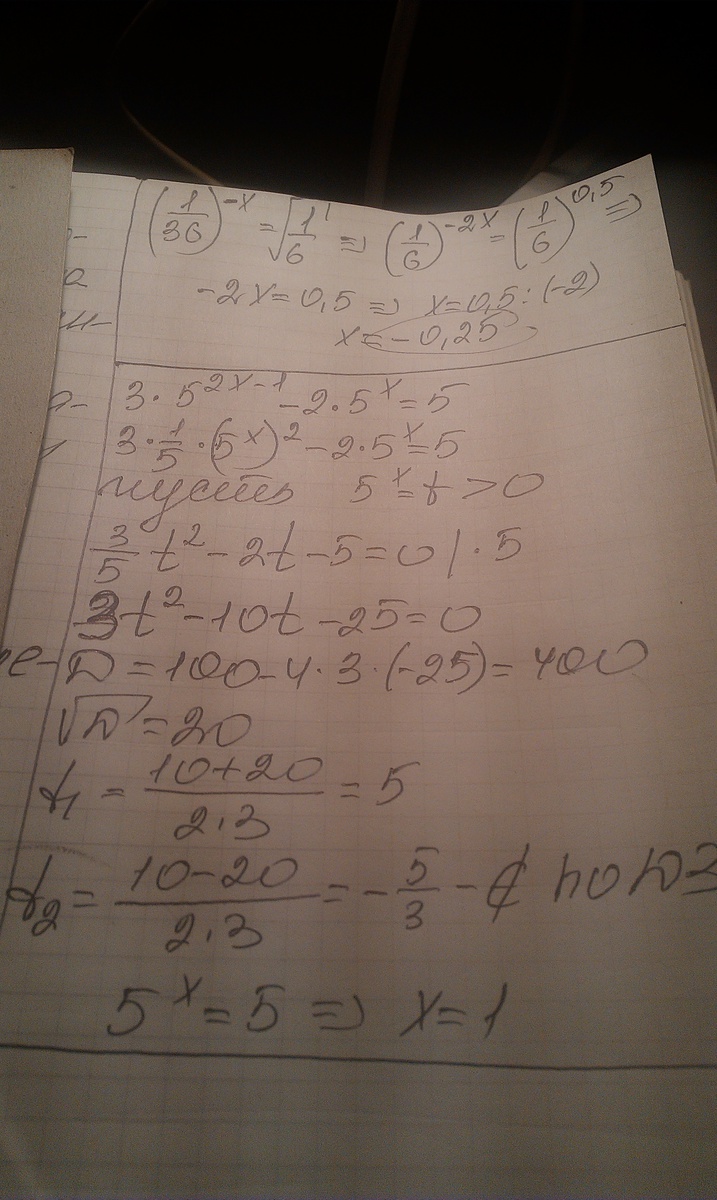 (1/36)^-x = √1/6 ⇒ (1/6)^-2x = (1/6)^0,5 ⇒
-2x = 0,5 ⇒ x = 0,5 : (-2)
x = -0,25
3 · 5^2x-1 - 2 · 5^x = 5
3 · 1/5 · (5^x)^2 - 2 · 5^x = 5
пусть 5^x = t > 0
3/5 t^2 - 2t - 5 = 0 | · 5
3t^2 - 10t - 25 = 0
D = 100 - 4 · 3 · (-25) = 400
√D = 20
t1 = 10+20 / 2·3 = 5
t2 = 10-20 / 2·3 = -5/3 - ∉ по ОДЗ
5^x = 5 ⇒ x = 1